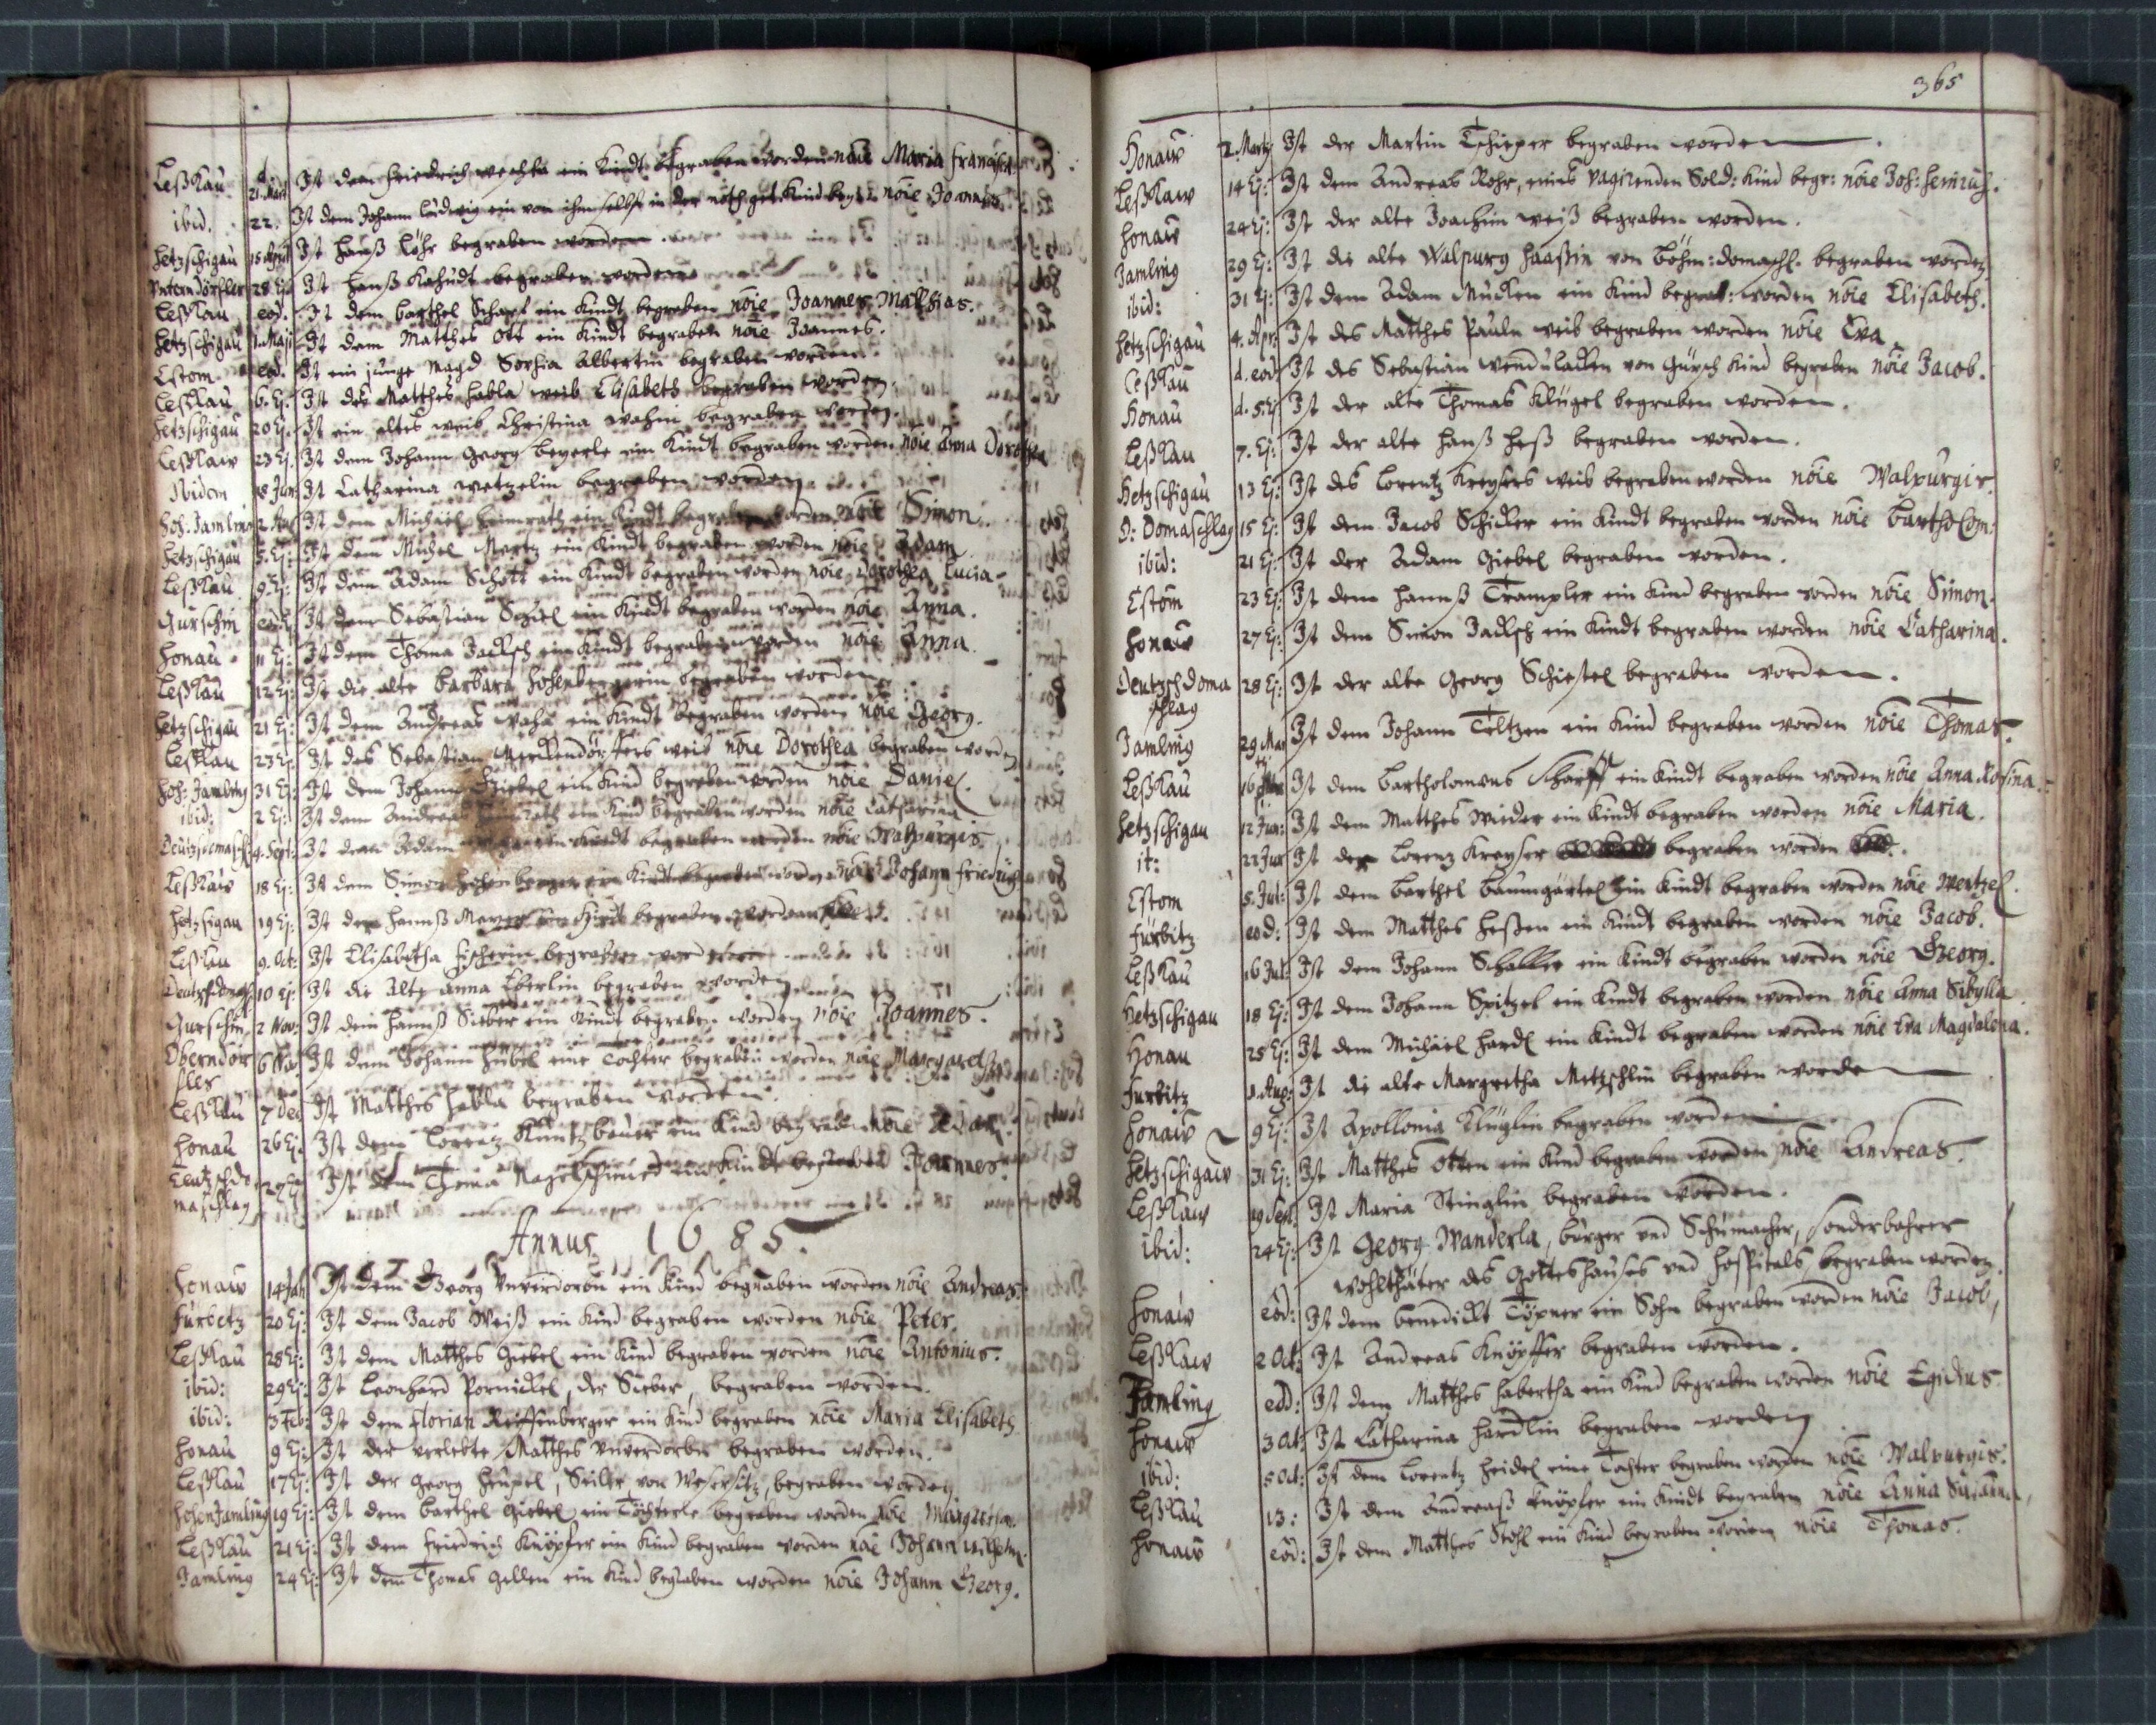 Leßkau 21. Mart Ist dem Friedrich ein Kindt begraben worden nõie Maria Francisca
ibid. 22. Ist dem Johann Ludwig ein von ihm selbst in der noth get. Kind begr. nõie Joannes
Hetzschigau 15 April Ist Hanß Löhr begraben worden
Unterndörfles 28 Ej. Ist Hanß begraben worden
Leßkau eod. Ist dem Barthel Scharf ein Kindt begraben nõie Joannes Matthias.
Hetzschigau 1. Maji Ist dem Matthes Ott ein Kindt begraben nõie Joannes.
Estom eod. Ist ein junge Magd Sophia Albertin begraben worden.
Leßkau 6. Ej. Ist des Matthes Habla weib Elisabeth begraben worden.
Hetzschigau 20 Ej. Ist ein altes weib Christina begraben worden.
Leßkaw 23 Ej. Ist dem Johann Georg Beyerle ein Kindt begraben worden nõie Anna Dorothea
Ibidem 18 Jun: Ist Catharina Wetzelin begraben worden
Hoh. Jamling 2 Ist dem Michäel Heimrath ein Kindt begraben worden nõie Simon.
Hetzschigau 5. Ej: Ist dem Michel Martz ein Kindt begraben worden nõie Adam
Leßkau 9 Ej: Ist dem Adam Schott ein Kindt begraben worden nõie Dorothea Lucia
Gurschin eod. Ist dem Sebastian Schiel ein Kindt begraben worden nõie Anna.
Honau 11 Ej: Ist dem Thoma Jacksch ein Kindt begraben worden nõie Anna
Leßkau 12 Ej: Ist die alte Barbara Hohenbergerin begraben worden
Hetzschigau 21 Ej: Ist dem Andreas ein Kindt begraben worden nõie Georg.
Leßkau 23 Ej: Ist des Sebastian Merckendörffers weib nõie Dorothea begraben worden
Hoh: Jamling 31 Ej: Ist dem Johann Giebel ein Kind begraben worden nõie Daniel.
ibid: 2 Ej: Ist dem Andreas ein Kind begraben worden nõie Catharina
4. Sept: Ist dem Adam ein Kindt begraben worden nõie Walpurgis
Leßkaw 18 Ej: Ist dem Simon Hohenberger ein Kindt begraben worden nõie Johann Friedrich
Hetzsigau 19 Ej: Ist der Hannß Mayer begraben worden
Leßkau 9. Oct: Ist Elisabetha Fischerin begraben worden
10 Ej: Ist die Alte Anna Eberlin begraben worden
Gurschin 2 Nov: Ist dem Hannß Sieber ein Kindt begraben worden nõie Joannes.
Oberndör 6 Nov: Ist dem Johann Hübel eine Tochter begraben worden nõie Margareth
fles
Leßkau 7 Dec Ist Matthes Habla begraben worden.
Honau 26 Ej. Ist dem Lorentz Küntzbauer ein Kind begraben nõie Adam.
Teutzschdo 29 Ej Ist dem Thoma Nagelschmied ein Kindt begraben Joannes
maschlag
Annus 1685.
Honaw 14 Jan Ist dem Georg Unverdorben ein Kind begraben worden nõie Andreas.
Furbetz 20 Ej: Ist dem Jacob Weiß ein Kind begraben worden nõie Peter.
Leßkau 28 Ej: Ist dem Matthes Giebel ein Kind begraben worden nõie Antonius.
ibid: 29 Ej: Ist Leonhard Pornickel, der Sieber, begraben worden.
ibid: 3 Feb: Ist dem Florian Reiffenberger ein Kind begraben nõie Maria Elisabeth
Honau 9 Ej: Ist der verlebte Matthes Unverdorben begraben worden.
Leßkau 17 Ej: Ist der Georg Heupel, Seiler von Weseritz, begraben worden
Hohenjamling 19 Ej: Ist dem Barthel Giebel ein Töchterle begraben worden nõie
Leßkau 21 Ej: Ist dem Friedrich Knöpfer ein Kind begraben worden nõie Johann Wilhelm.
Jamling 24 Ej: Ist dem Thomas Gellen ein Kind begraben worden nõie Johann Georg.
365
Honaw 2. Martz Ist der Martin Tschieper begraben worden
Leßkaw 14 Ej: Ist dem Andreas Rohr, eines vagirenden Sold: Kind begr: nõie Joh: Henrich.
Honaw 24 Ej: Ist der alte Joachim Weiß begraben worden.
Jamling 29 Ej: Ist die alte Walpurg Haaßin von Böhm: domaschl. begraben worden
ibid: 31 Ej: Ist dem Adam Mucken ein Kind begrab: worden nõie Elisabeth.
Hetzschigau 4. Apr: Ist des Matthes Pauln weib begraben worden nõie Eva
Leßkau d. eod: Ist des Sebastian von Gursch Kind begraben nõie Jacob.
Honau d. 5. Ej Ist der alte Thomas Klügel begraben worden.
Leßkau 7. Ej: Ist der alte Hanß Heß begraben worden.
Hetzschigau 13 Ej: Ist des Lorentz Kreysers weib begraben worden nõie Walpurgis.
D: Domaschlag 15 Ej: Ist dem Jacob Schicker ein Kindt begraben worden nõie Bartholom:
ibid: 21 Ej: Ist der Adam Giebel begraben worden.
Estom 23 Ej: Ist dem Hannß Trampler ein Kind begraben worden nõie Simon.
Honaw 27 Ej: Ist dem Simon Jacksch ein Kindt begraben worden nõie Catharina.
Deutzschdoma 28 Ej: Ist der alte Georg Schiestel begraben worden.
schlag
Jamling 29 Ist dem Johann Teltzen ein Kind begraben worden nõie Thomas.
Leßkau 16 Ist dem Bartholomaeus Scharff ein Kindt begraben worden nõie Anna Rosina.
Hetzschigau 12 Jun: Ist dem Matthes Wieder ein Kindt begraben worden nõie Maria.
it: 22 Jun Ist der Lorenz Kreyser begraben worden
Estom 5. Jul: Ist dem Barthel Baumgärtel ein Kindt begraben worden nõie Wentzel.
Furbitz eod: Ist dem Matthes Heßen ein Kindt begraben worden nõie Jacob.
Leßkau 16 Jul: Ist dem Johann Schaller ein Kindt begraben worden nõie Georg.
Hetzschigau 18 Ej: Ist dem Johann Spitzel ein Kindt begraben worden nõie Anna Sibylla
Honau 25 Ej: Ist dem Michäel Hardl ein Kindt begraben worden nõie Eva Magdalena.
Furbitz 1. Aug: Ist die alte Margretha Metzschlin begraben worden
Honaw 9 Ej: Ist Apollonia Klüglin begraben worden
Hetzschigaw 31 Ej: Ist Matthes Otten ein Kind begraben worden nõie Andreas.
Leßkaw 19 Sept: Ist Maria Stinglin begraben worden.
ibid: 24 Ej: Ist Georg Wanderla, burger und Schumacher, sonderbahrer
wohlthäter des Gotteshauses und Hospitals, begraben worden.
Honaw eod: Ist dem Benedickt Töpner ein Sohn begraben worden nõie Jacob,
Leßkaw 2 Oct: Ist Andreas Knöpffer begraben worden.
Jamling eod: Ist dem Matthes Habertha ein Kind begraben worden nõie Egidius.
Honaw 3 Oct: Ist Catharina Hardlin begraben worden
ibid: 5 Oct: Ist dem Lorentz Heidel eine Tochter begraben worden nõie Walpurgis.
Leßkau 13: Ist dem Andreaß Knöpfer ein Kindt begraben nõie Anna Susanna,
Honaw eod: Ist dem Matthes Stohl ein Kind begraben worden nõie Thomas.